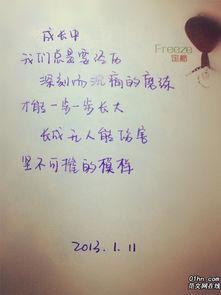 成长中
Freeze
定格
我们总是要经历
深刻而沉痛的磨练
才能一步一步长大
长成无人能伤害
坚不可摧的模样
2013.1.11
01hn.com
范文网在线